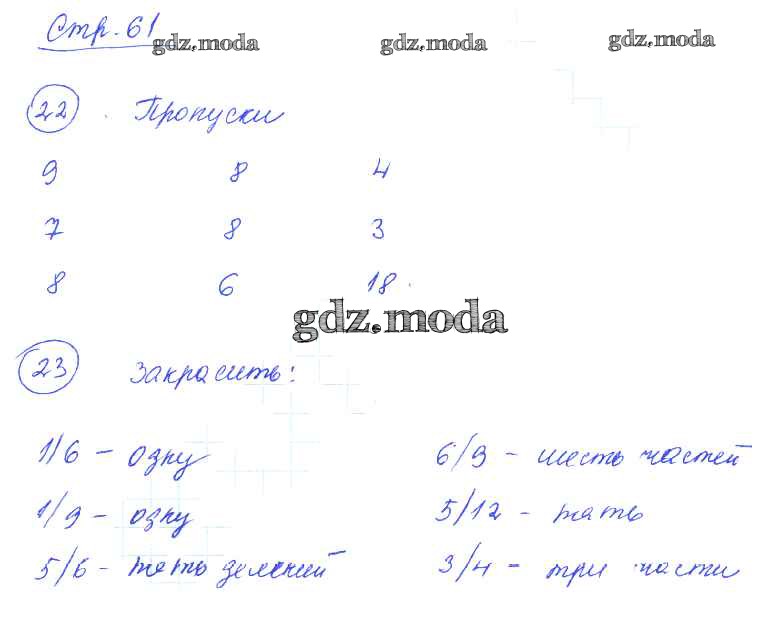 Стр. 61
gdz.moda gdz.moda gdz.moda
22 . Пропуски
9 8 4
7 8 3
8 6 18.
gdz.moda
23 Закрасить:
1/6 - одну 6/9 - шесть частей
1/9 - одну 5/12 - пять
5/6 - пять 3/4 - три части